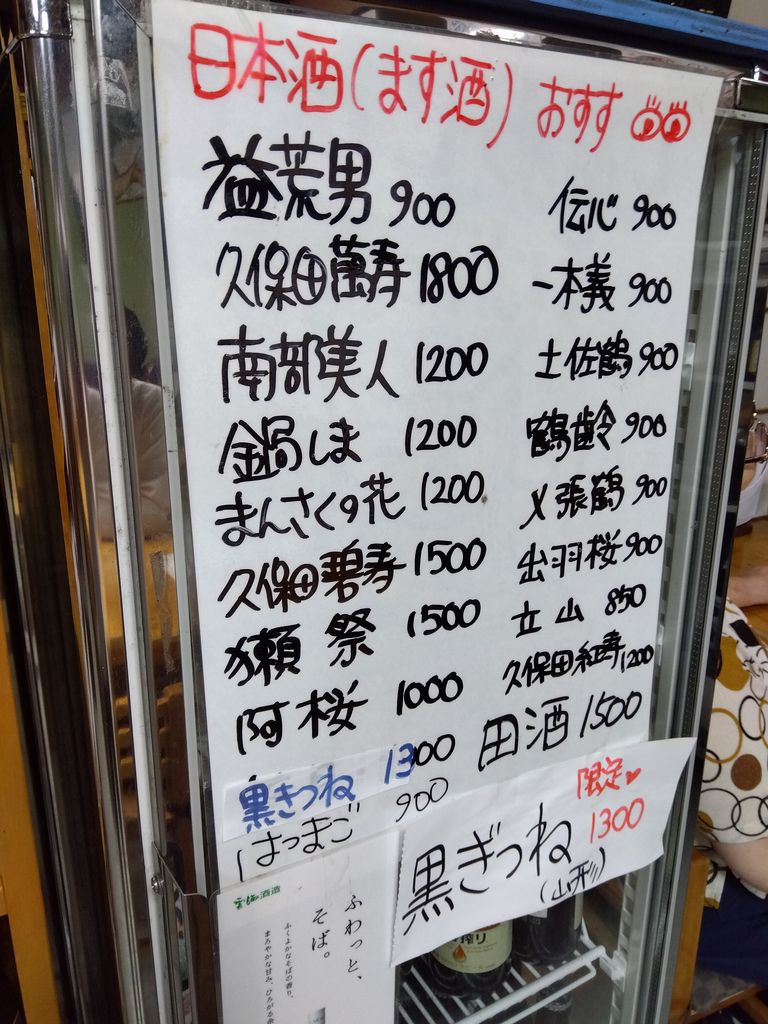 日本酒(ます酒) おすす
益荒男 900
久保田萬寿 1800
南部美人 1200
鍋しま 1200
まんさくの花 1200
久保田碧寿 1500
獺祭 1500
阿桜 1000
黒きつね 1300
はつまご 900
伝心 900
一本義 900
土佐鶴 900
鶴齢 900
〆張鶴 900
出羽桜 900
立山 850
久保田紅寿 1200
田酒 1500
限定♥
黒ぎつね 1300
(山形)
雲海酒造
ふわっと、
そば。
ふくよかなそばの香り、
まろやかな甘み、ひろがる余
搾り